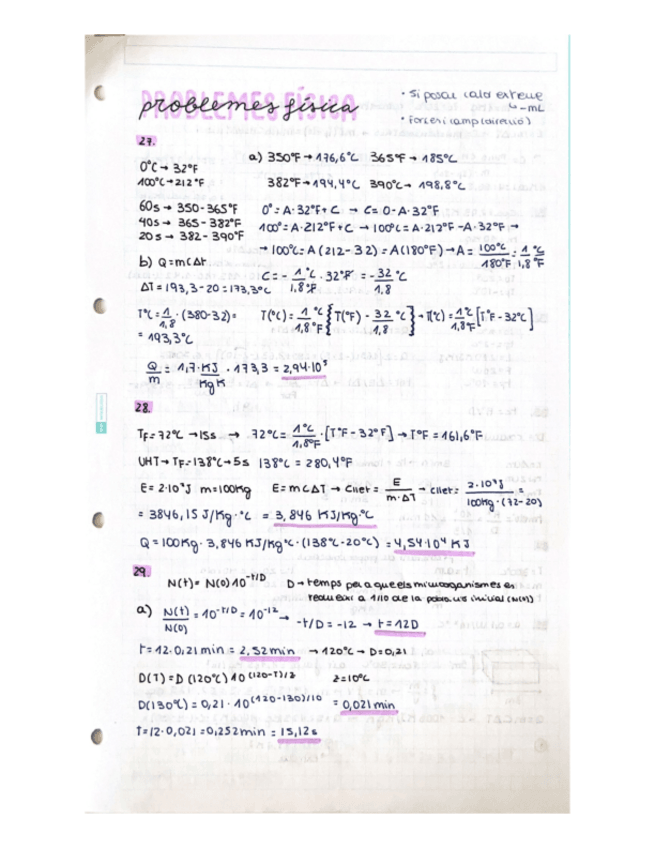 PROBLEMES FÍSICA
problemes física
· Si posau calor extreue
↳ -mL
27.
0°C → 32°F
100°C → 212°F
a) 350°F → 176,6°C 365°F → 185°C
382°F → 194,4°C 390°C → 198,8°C
60s → 350-365°F
40s → 365-382°F
20s → 382-390°F
0° = A·32°F + C → C = 0-A·32°F
100° = A·212°F + C → 100°C = A·212°F - A·32°F →
→ 100°C = A(212-32) = A(180°F) → A = 100°C/180°F = 1/1,8 °C/°F
b) Q = mCΔt
C = - 1/1,8 °C/°F · 32°F = -32/1,8 °C
ΔT = 193,3-20 = 173,3°C
T°C = 1/1,8 · (380-32) =
= 193,3°C
T(°C) = 1/1,8 °C/°F {T(°F) - 32/1,8 °C} → T(°C) = 1°C/1,8°F [T°F - 32°C]
Q/m = 1,7 · KJ/KgK · 173,3 = 2,94·10⁵
28.
T_F = 72°C → 15s → 72°C = 1°C/1,8°F · [T°F - 32°F] → T°F = 161,6°F
UHT → T_F = 138°C → 5s 138°C = 280,4°F
E = 2·10⁷J m = 100Kg E = mCΔT → Cllet = E/m·ΔT → Cllet = 2·10⁷J/100Kg·(72-20) =
= 3846,15 J/Kg·°C = 3,846 KJ/Kg°C
Q = 100Kg · 3,846 KJ/Kg°C · (138°C-20°C) = 4,54·10⁴ KJ
29.
N(t) = N(0)10^-t/D D → temps per a que els microorganismes es
redueixi a 1/10 de la inicial (N(0))
a) N(t)/N(0) = 10^-t/D = 10^-12 → -t/D = -12 → t = 12D
t = 12·0,21 min = 2,52 min → 120°C → D = 0,21
D(T) = D(120°C)10^(120-T)/z z = 10°C
D(130°C) = 0,21·10^(120-130)/10 = 0,021 min
t = 12·0,021 = 0,252 min = 15,12s